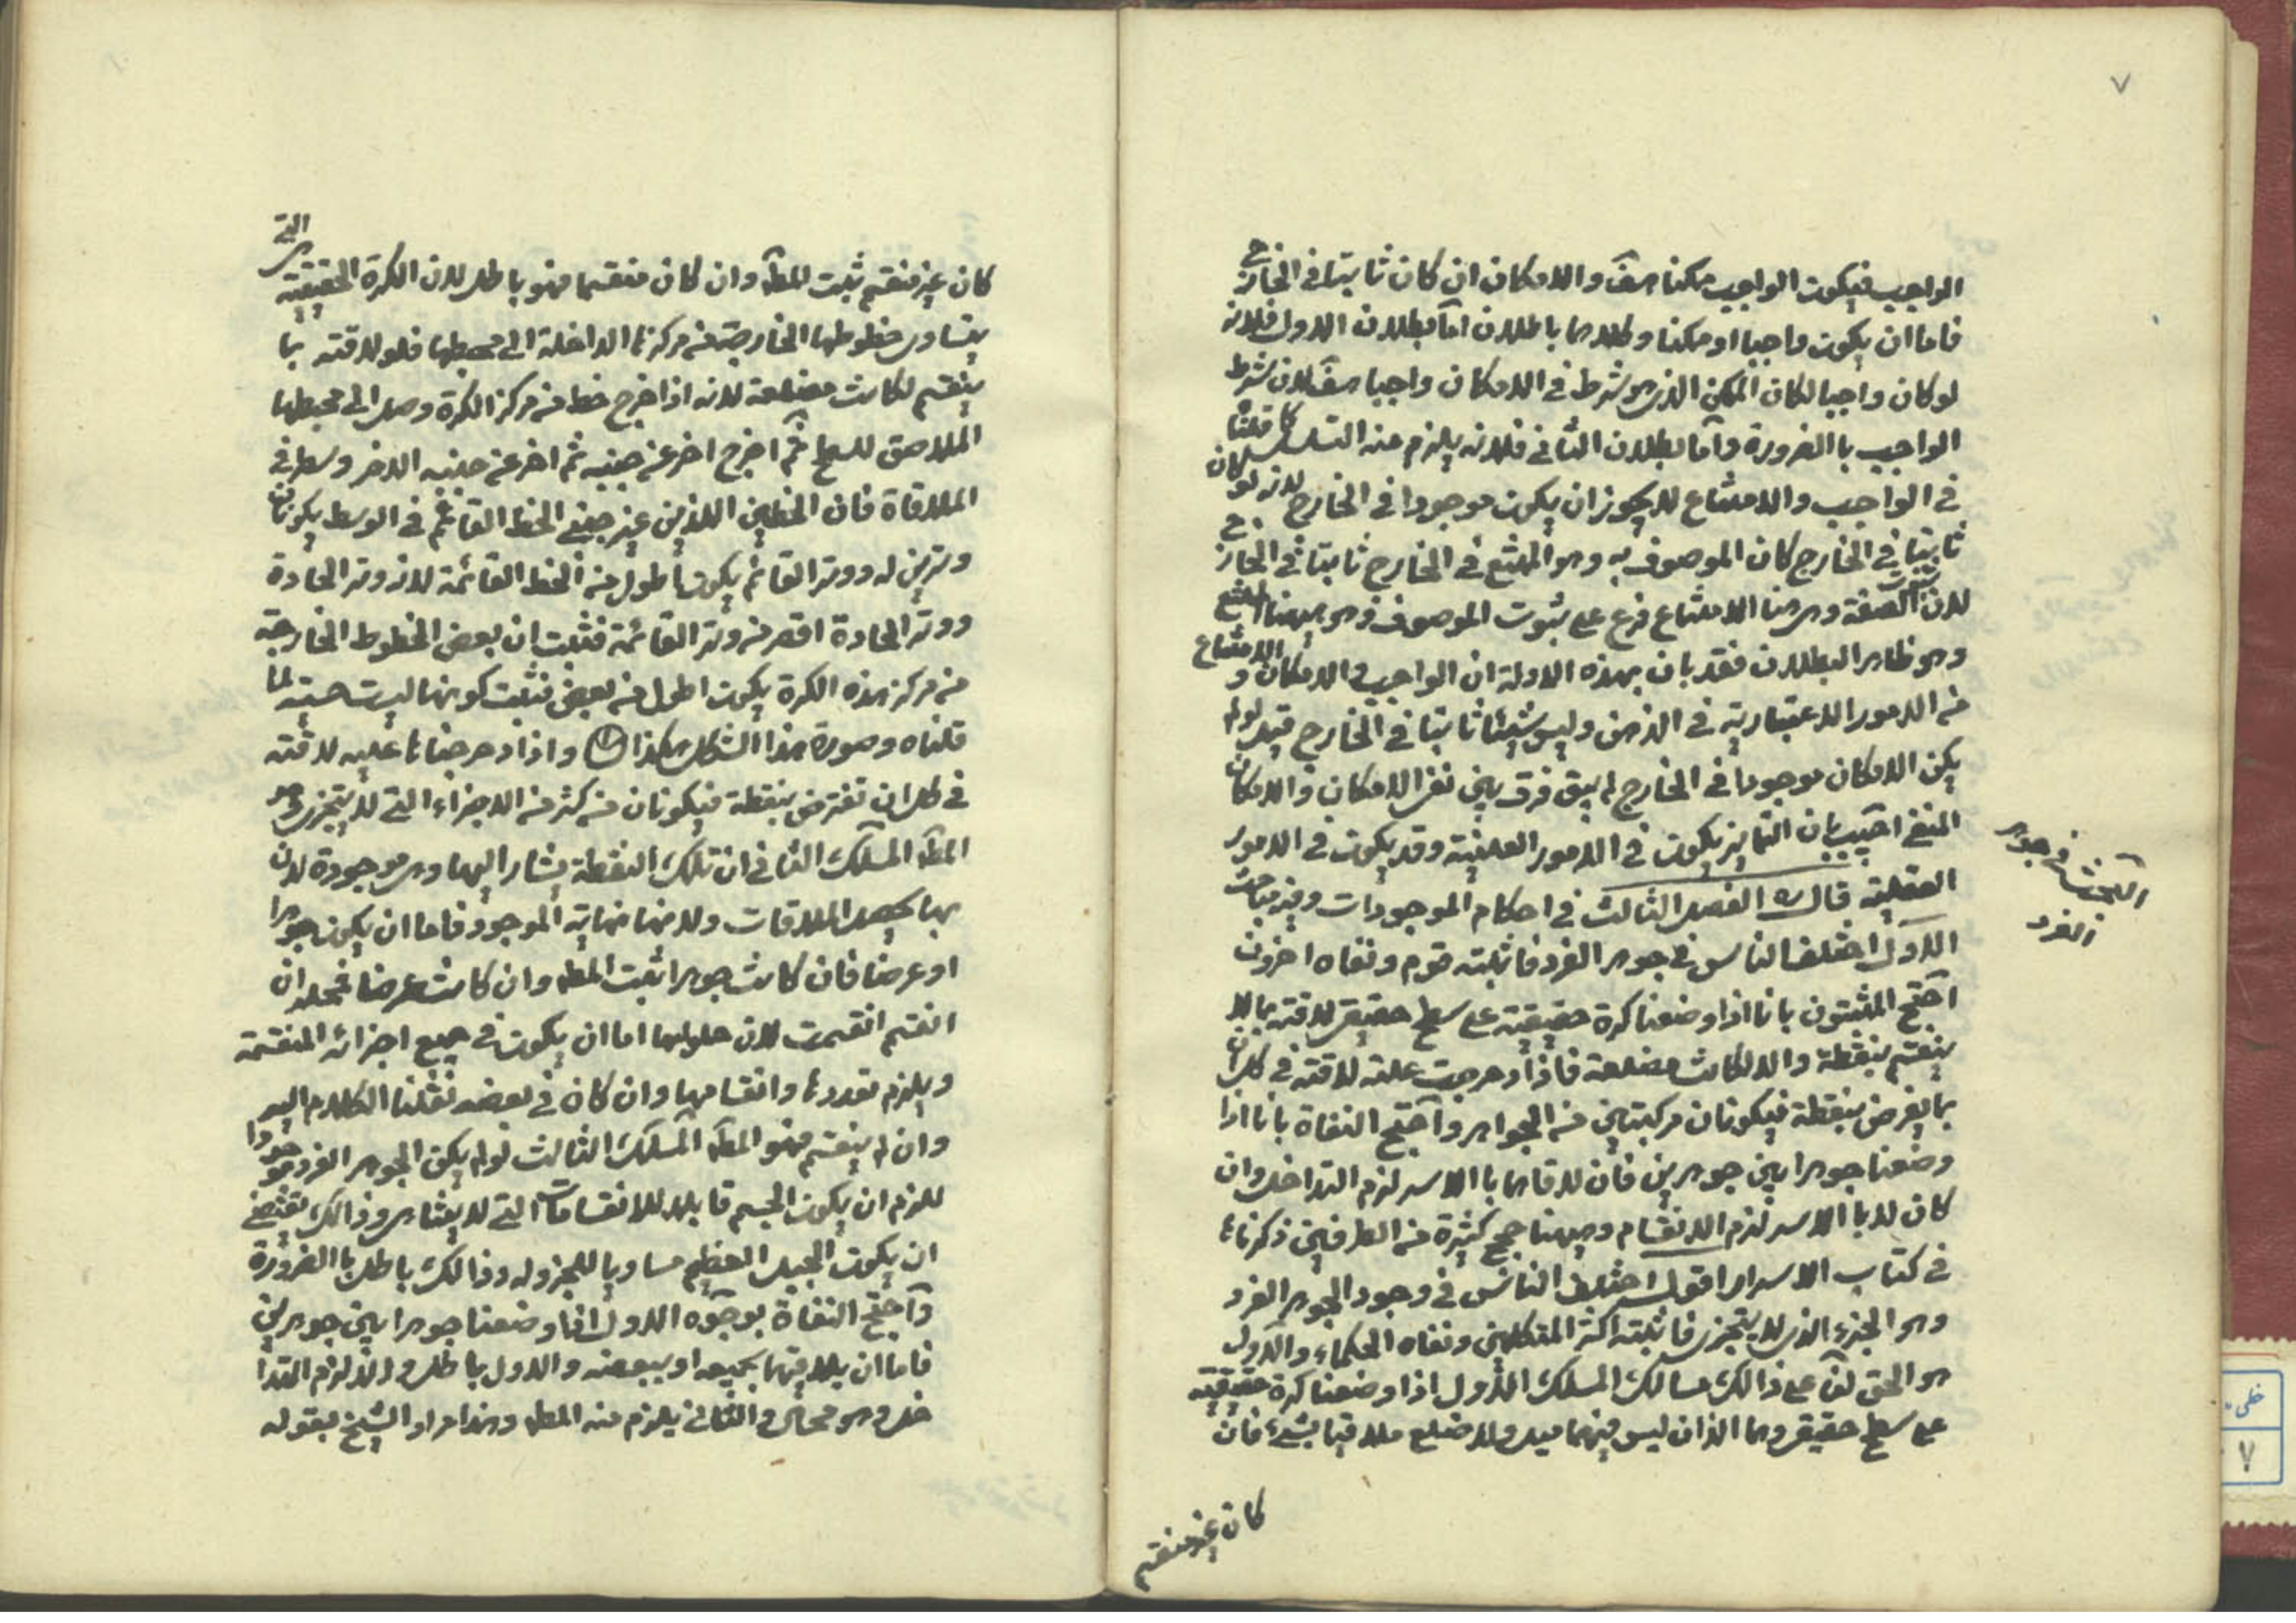 ٧
الواجب فيكون الواجب ممكنا هف والامكان ان كان ثابتا في الخارج
فاما ان يكون واجبا او ممكنا وكلاهما باطلان اما بطلان الاول فلانه
لو كان واجبا لكان الممكن الذي هو شرط في الامكان واجبا هف لان شرط
الواجب باالضرورة واما بطلان الثاني فلانه يلزم منه التسلسل كما قلنا
في الواجب والامتناع لا يجوز ان يكون موجودا في الخارج لانه لو كان
ثابتا في الخارج كان الموصوف به وهو الممتنع في الخارج ثابتا في الخارج
لان الصفة وهي هنا الامتناع فرع على ثبوت الموصوف وهو ههنا الممتنع
وهو ظاهر البطلان فقد بان بهذه الادلة ان الواجب والامكان والامتناع
من الامور الاعتبارية في الذهن وليس شيئا ثابتا في الخارج قيل لو لم
يكن الامكان موجودا في الخارج لم يبق فرق بين نفي الامكان والامكان
المنفي اجيب بان التمايز يكون في الامور العينية وقد يكون في الامور
العقلية قال ره الفصل الثالث في احكام الموجودات وفيه مباحث
البحث في جوهر
الفرد
الاول اختلف الناس في جوهر الفرد فاثبته قوم ونفاه اخرون
احتج المثبتون بانا اذا وضعنا كرة حقيقية على سطح حقيقي لاقته بما لا
ينقسم بنقطة والا لكانت مضلعة فاذا دحرجت عليه لاقته في كل ان
بما يفرض بنقطة فيكونان مركبتين من الجواهر واحتج النفاة بانا اذا
وضعنا جوهرا بين جوهرين فان لاقاهما باالاسر لزم التداخل وان
كان لا باالاسر لزم الانقسام وههنا حجج كثيرة من الطرفين ذكرناها
في كتاب الاسرار اقول اختلف الناس في وجود الجوهر الفرد
وهو الجزء الذي لا يتجزى فاثبته اكثر المتكلمين ونفاه الحكماء والاول
هو الحق لنا على ذالك مسالك المسلك الاول اذا وضعنا كرة حقيقية
على سطح حقيقي وهما الذان ليس فيهما ميل ولا ضلع ملاقيا بشيء فان
كان غير منقسم
كان غير منقسم ثبت المط وان كان منقسما فهو باطل لان الكرة الحقيقية هي التي
يتساوى خطوطها الخارجة من مركزها الداخلة الى محيطها فلو لاقته بما
ينقسم لكانت مضلعة لانه اذا خرج خط من مركز الكرة وصل الى محيطها
الملاصق للسطح ثم اخرج اخر عن جنبه ثم اخر عن جنبه الاخر وسطر في
الملاقاة فان الخطين اللذين عن جنبي الخط القائم في الوسط يكونان
وترين له ووتر القائم يكون اطول من الخط القائمة لانه وتر الحادة
ووتر الحادة اقصر من وتر القائمة فثبت ان بعض الخطوط الخارجة
من مركز هذه الكرة يكون اطول من بعض فثبت كونها ليست حقيقية لما
قلناه وصورة هذا الشكل هكذا واذا دحرجناها عليه لاقته
في كل ان تفترض بنقطة فيكونان من كثرة من الاجزاء التي لا يتجزى وهو
المط المسلك الثاني ان تلك النقطة يشار اليها وهي موجودة لان
بها يحصل الملاقات ولانها نهاية الموجود فاما ان يكون جوهرا
او عرضا فان كانت جوهرا ثبت المط وان كانت عرضا فمحله ان
انقسم انقسمت لان حلولها اما ان يكون في جميع اجزائه المنقسمة
ويلزم تعددها وانقسامها وان كان في بعضه نقلنا الكلام اليه
وان لم ينقسم فهو المط المسلك الثالث لو لم يكن الجوهر الفرد موجودا
للزم ان يكون الجسم قابلا للانقسامات التي لا يتناهى وذالك يقتضي
ان يكون الجبل العظيم مساويا للخردلة وذالك باطل باالضرورة
واحتج النفاة بوجوه الاول اذا وضعنا جوهرا بين جوهرين
فاما ان يلاقيهما بجميعه او ببعضه والاول باطل والا لزم التدا
خل وهو محال والثاني يلزم منه المط وهذا مراد الشيخ بقوله